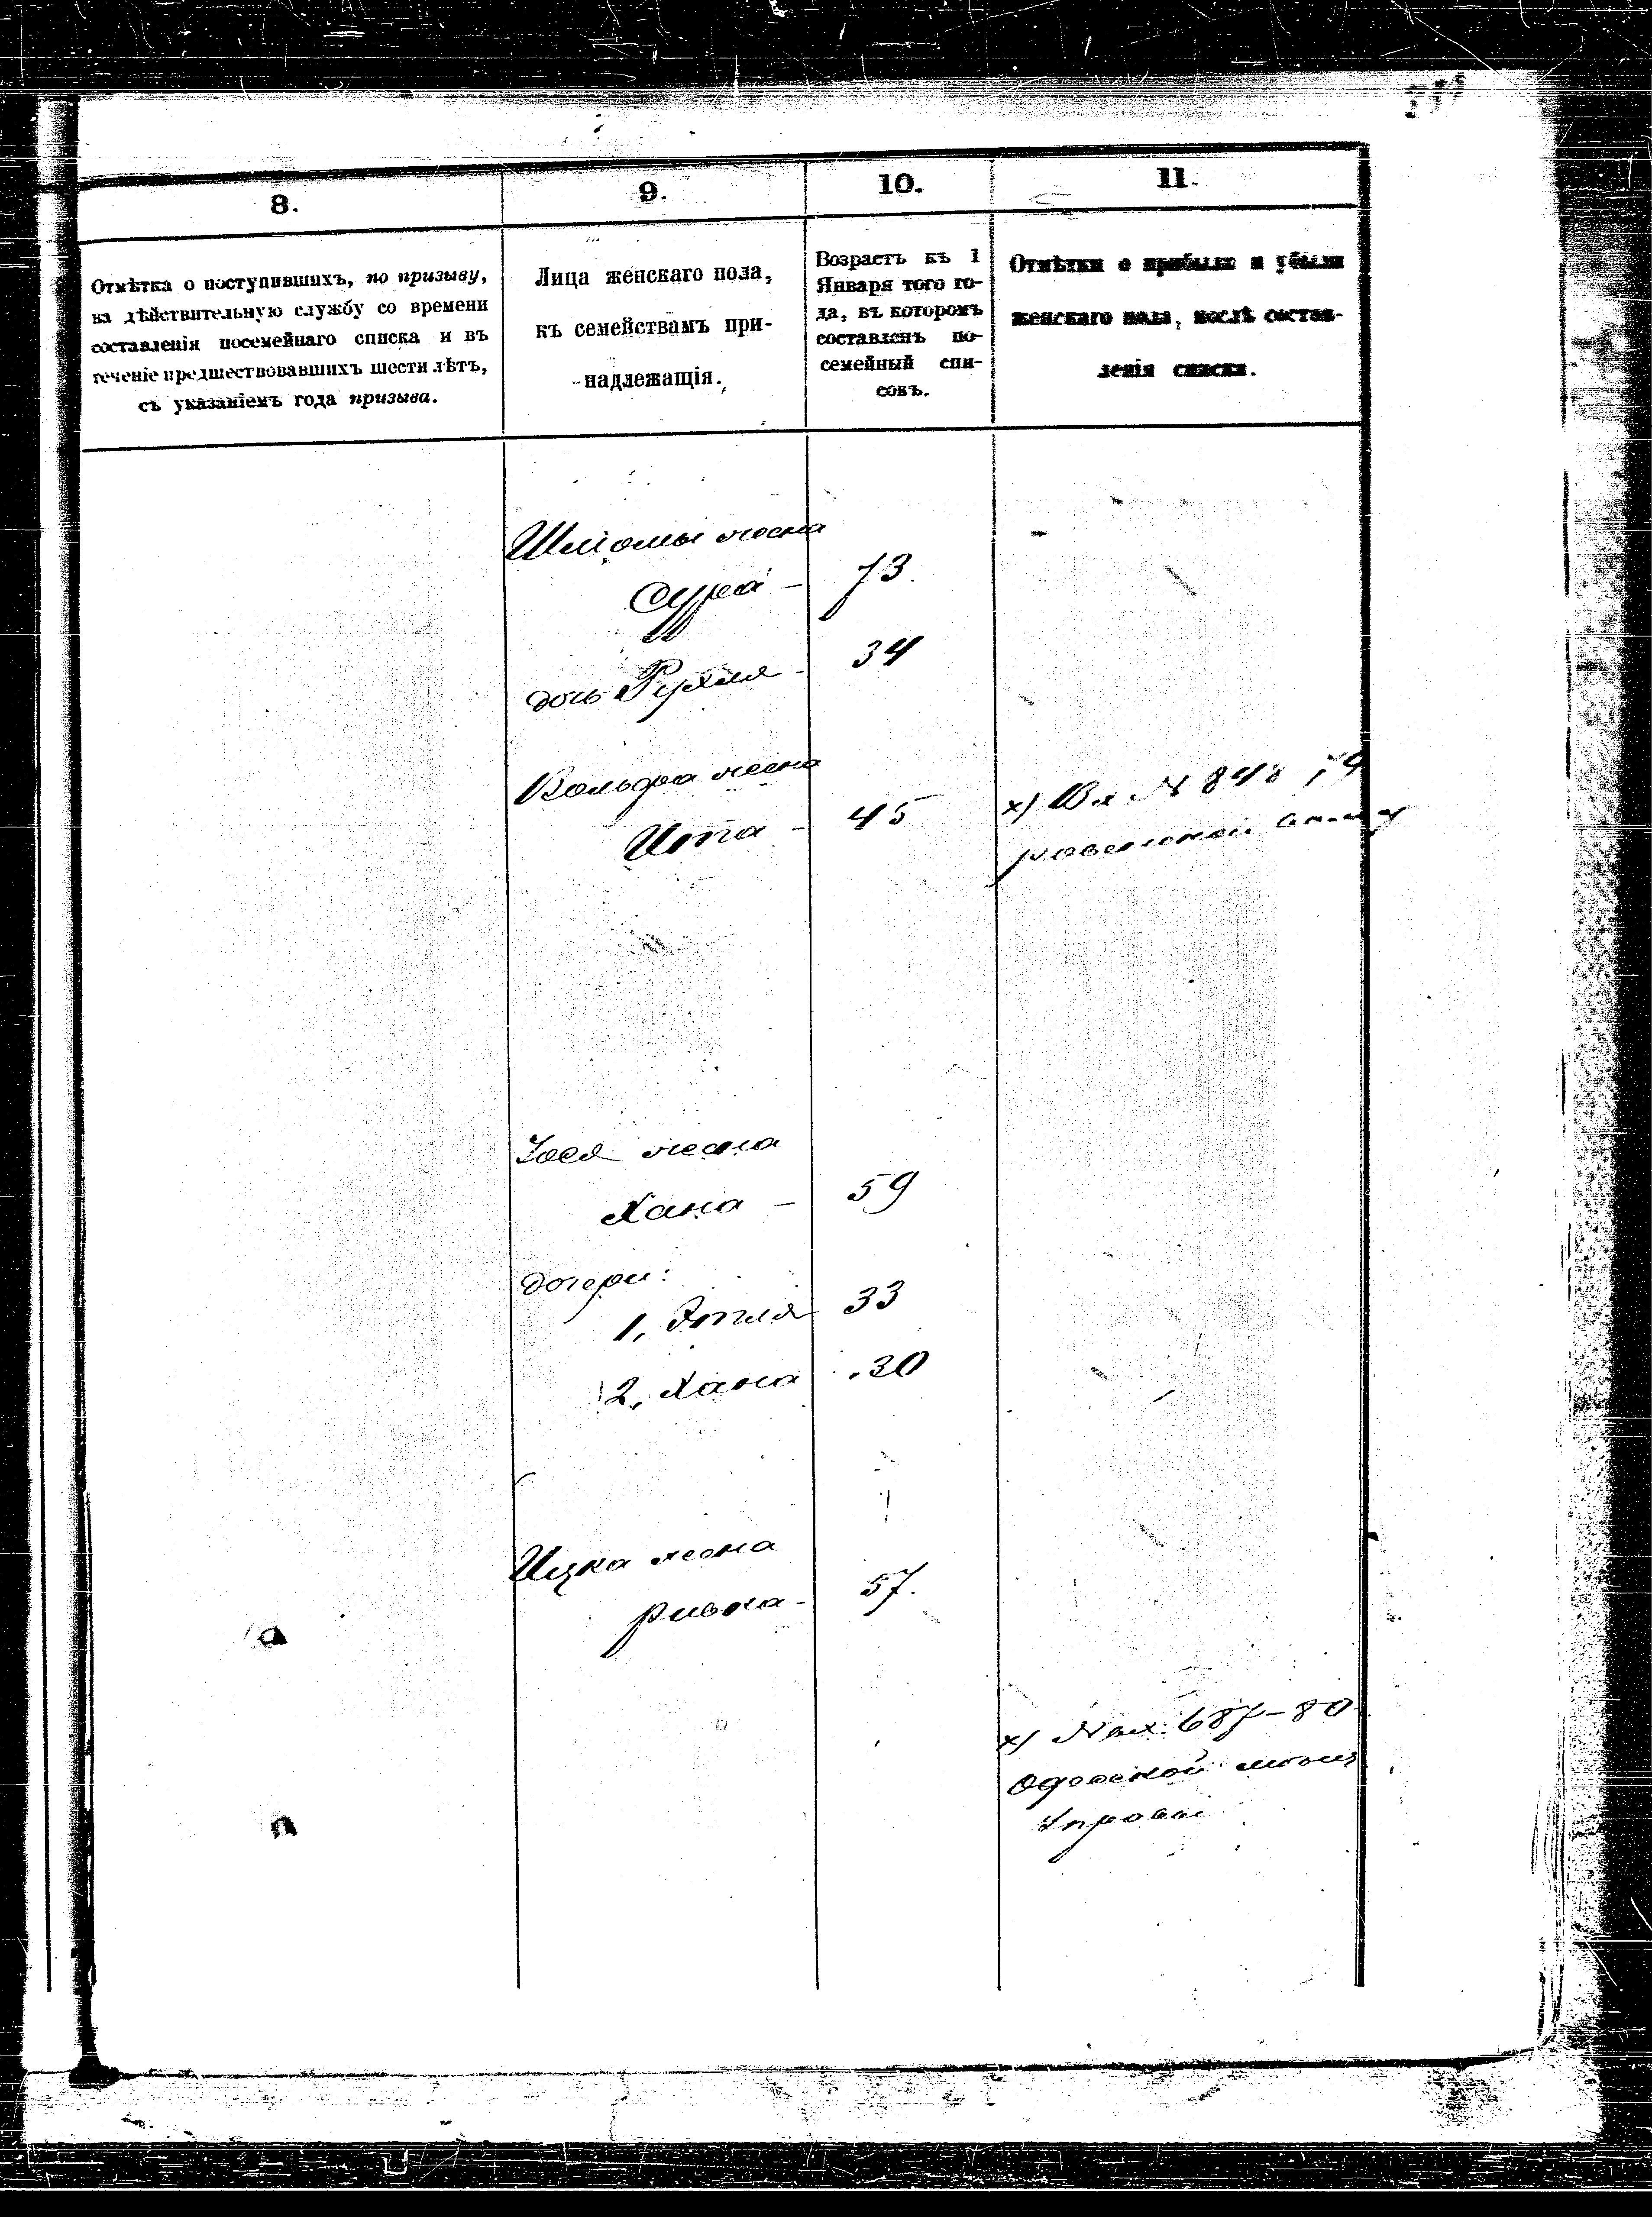 8.
9.
10.
11.
Отмѣтка о поступившихъ, по призыву,
на дѣйствительную службу со времени
составленія посемейнаго списка и въ
теченіе предшествовавшихъ шести лѣтъ,
съ указаніемъ года призыва.
Лица женскаго пола,
къ семействамъ при-
надлежащія.
Возрастъ къ 1
Января того го-
да, въ которомъ
составленъ по-
семейный спи-
сокъ.
Отмѣтки о прибыли и убыли
женскаго пола, послѣ состав-
ленія списка.
Шліомы жена
Сура - 73.
дочь Рухля - 34
Вольфа жена
Ита - 45
х) Вх № 848
Іося жена
Хана - 59
дочери:
1, Этля 33
2, Хана 30
Ицка жена
Ривка - 57.
х) № вх. 687-80
Одесской
Управы